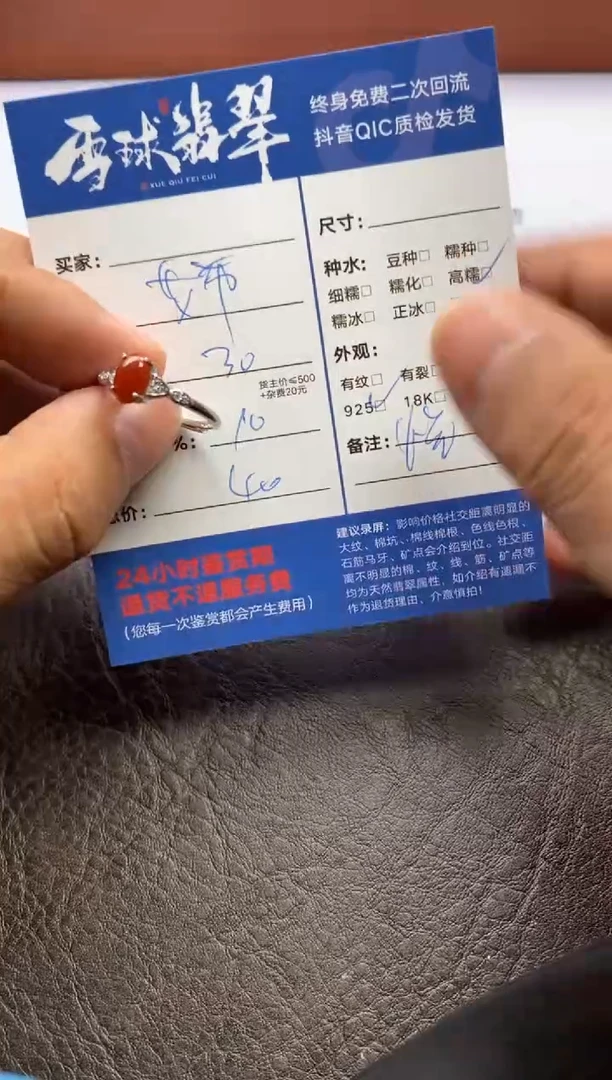 雪球翡翠
XUE QIU FEI CUI
终身免费二次回流
抖音QIC质检发货
买家：
30
货主价≤500
+杂费20元
%：
10
价：
40
尺寸：
种水： 豆种□ 糯种□
细糯□ 糯化□ 高糯☑
糯冰□ 正冰□
外观：
有纹□ 有裂
925☑ 18K□
备注：
24小时鉴赏期
退货不退服务费
（您每一次鉴赏都会产生费用）
建议录屏：影响价格社交距离明显的
大纹、棉坑、棉线棉根、色线色根、
石筋马牙、矿点会介绍到位。社交距
离不明显的棉、纹、线、筋、矿点等
均为天然翡翠属性，如介绍有遗漏不
作为退货理由，介意慎拍！